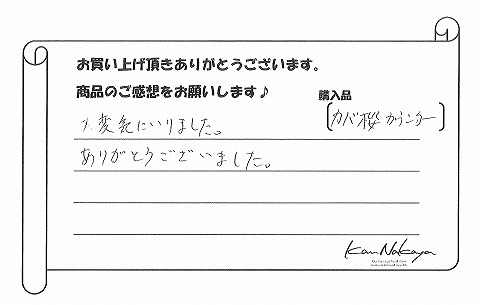 お買い上げ頂きありがとうございます。
商品のご感想をお願いします♪
購入品
[カバ桜カウンター]
大変気にいりました。
ありがとうございました。
Kan Nakaya